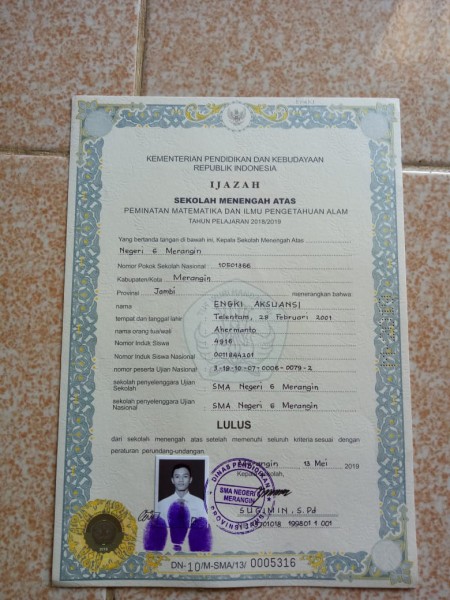 KEMENTERIAN PENDIDIKAN DAN KEBUDAYAAN
REPUBLIK INDONESIA
IJAZAH
SEKOLAH MENENGAH ATAS
PEMINATAN MATEMATIKA DAN ILMU PENGETAHUAN ALAM
TAHUN PELAJARAN 2018/2019
Yang bertanda tangan di bawah ini, Kepala Sekolah Menengah Atas
Negeri 6 Merangin
Nomor Pokok Sekolah Nasional : 10501366
Kabupaten/Kota : Merangin
Provinsi Jambi menerangkan bahwa:
nama : ENGKI AKSUANSI
tempat dan tanggal lahir : Telentam, 28 Februari 2001
nama orang tua/wali : Ahermanto
Nomor Induk Siswa : 4916
Nomor Induk Siswa Nasional : 0011844301
nomor peserta Ujian Nasional : 3-19-10-07-0006-0079-2
sekolah penyelenggara Ujian Sekolah : SMA Negeri 6 Merangin
sekolah penyelenggara Ujian Nasional : SMA Negeri 6 Merangin
LULUS
dari sekolah menengah atas setelah memenuhi seluruh kriteria sesuai dengan
peraturan perundang-undangan.
13 Mei 2019
Kepala Sekolah,
DINAS PENDIDIKAN
SMA NEGERI
MERANGIN
PROVINSI
SUGIMIN, S.Pd
199801 1 001
DN-10/M-SMA/13/ 0005316